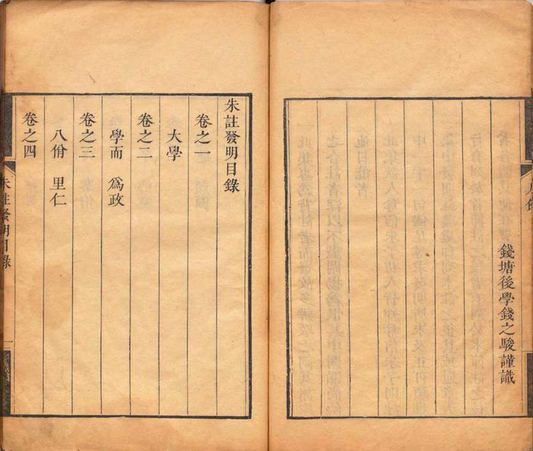 錢塘後學錢之駿謹識
朱註發明目錄
卷之一
大學
卷之二
學而 為政
卷之三
八佾 里仁
卷之四
朱註發明目錄
一